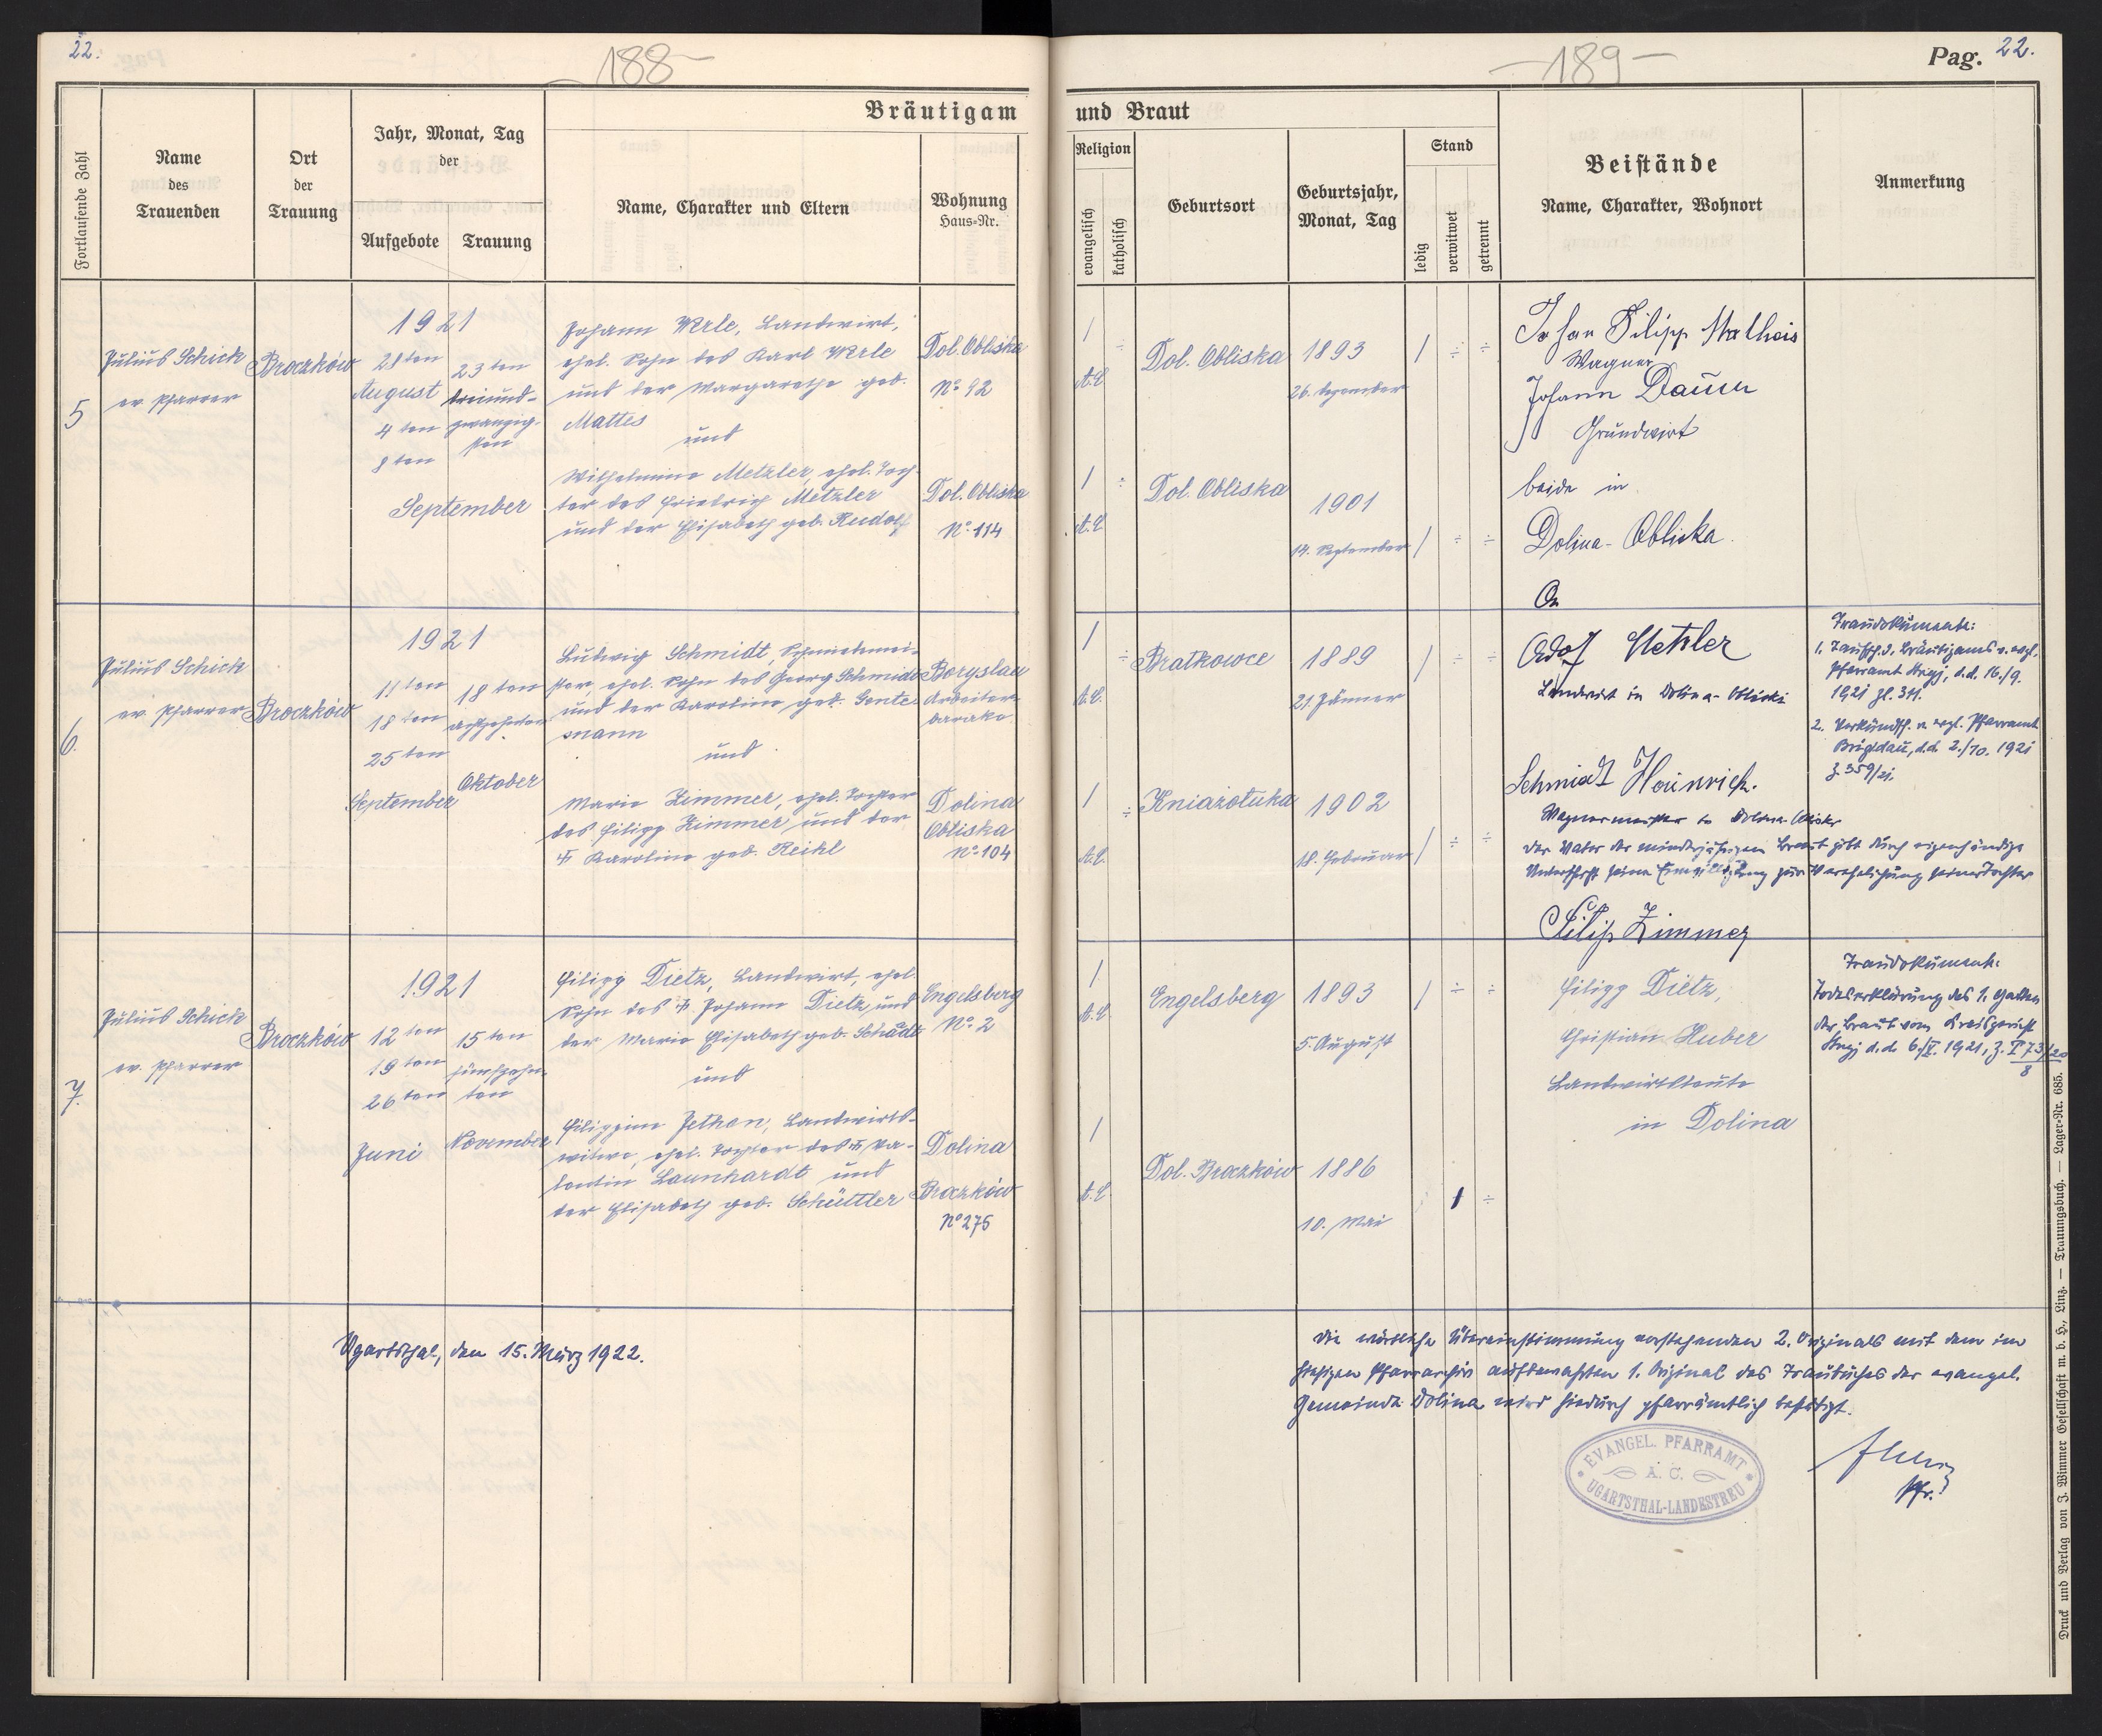 22.
-188-
Bräutigam
Fortlaufende Zahl
Name
des
Trauenden
Ort
der
Trauung
Jahr, Monat, Tag
der
Aufgebote
Trauung
Name, Charakter und Eltern
Wohnung
Haus=Nr.
5
Julius Schick
ev. Pfarrer
Broczków
1921
28ten
August
4ten
8ten
September
23ten
dreiund-
zwanzig-
sten
Johann Werle, Landwirt,
ehel. Sohn des Karl Werle
und der Margarethe geb.
Mattes
und
Wilhelmine Metzler, ehel. Toch-
ter des Friedrich Metzler
und der Elisabeth geb. Rudolf
Dol. Obliska
No 92
Dol. Obliska
No 114
6.
Julius Schick
ev. Pfarrer
Broczków
1921
11ten
18ten
25ten
September
18ten
achtzehnten
Oktober
Ludwig Schmidt, Schmiedmei-
ster, ehel. Sohn des Georg Schmidt
und der Karoline geb. Gente-
mann
und
Marie Zimmer, ehel. Tochter
des Filipp Zimmer und der
Karoline geb. Reikl
Boryslau
Arbeiter-
barake
Dolina
Obliska
No 104
7.
Julius Schick
ev. Pfarrer
Broczków
1921
12ten
19ten
26ten
Juni
15ten
fünfzehn-
ten
November
Filipp Dietz, Landwirt, ehel.
Sohn des Johann Dietz und
der Marie Elisabeth geb. Schädt
und
Filippine Jethon, Landwirts-
witwe, ehel. Tochter des Va-
lentin Launhardt und
der Elisabeth geb. Schüttler
Engelsberg
No 2
Dolina
Broczków
No 275
Ugartsthal, den 15. März 1922.
-189-
Pag. 22.
und Braut
Religion
evangelisch
katholisch
Geburtsort
Geburtsjahr,
Monat, Tag
Stand
ledig
verwitwet
getrennt
Beistände
Name, Charakter, Wohnort
Anmerkung
1
A.C.
Dol. Obliska
1893
26. Dezember
1
÷
÷
1
A.C.
Dol. Obliska
1901
14. September
1
÷
÷
Johan Filipp Matheis
Wagner
Johann Dauer
Grundwirt
beide in
Dolina-Obliska.
1
A.C.
Bratkowce
1889
21. Jänner
1
÷
÷
1
A.C.
Kniażoluka
1902
18. Februar
1
÷
÷
Adolf Metzler
Landwirt in Dolina-Obliski
Schmidt Heinrich.
Wagnermeister in Dolina-Obliska
Der Vater der minderjährigen Braut gibt durch eigenhändige
Unterschrift seine Einwilligung zur Verehelichung seiner Tochter
Filip Zimmer
Traudokumente:
1. Taufsch. d. Bräutigams v. evgl.
Pfarramt Stryj, d.d. 16./9.
1921 Zl. 311.
2. Verkündsch. v. evgl. Pfarramt
Brigidau, d.d. 2./10. 1921
Z. 359/21.
1
A.C.
Engelsberg
1893
5. August
1
÷
÷
1
A.C.
Dol. Broczków
1886
10. Mai
1
÷
Filipp Dietz,
Christian Huber
Landwirtsleute
in Dolina
Traudokument:
Todeserklärung des 1. Gatten
der Braut vom Kreisgericht
Stryj d.d. 6./V. 1921, Z. T 73/20
8
Die wörtliche Übereinstimmung vorstehenden 2. Originals mit dem im
hiesigen Pfarrarchiv aufbewahrten 1. Original des Traubuches der evangel.
Gemeinde Dolina wird hiedurch pfarrämtlich bestätigt.
EVANGEL. PFARRAMT
A. C.
UGARTSTHAL-LANDESTREU
Pfr.
Druck und Verlag von J. Wimmer Gesellschaft m. b. H., Linz. — Trauungsbuch. — Lager-Nr. 685.